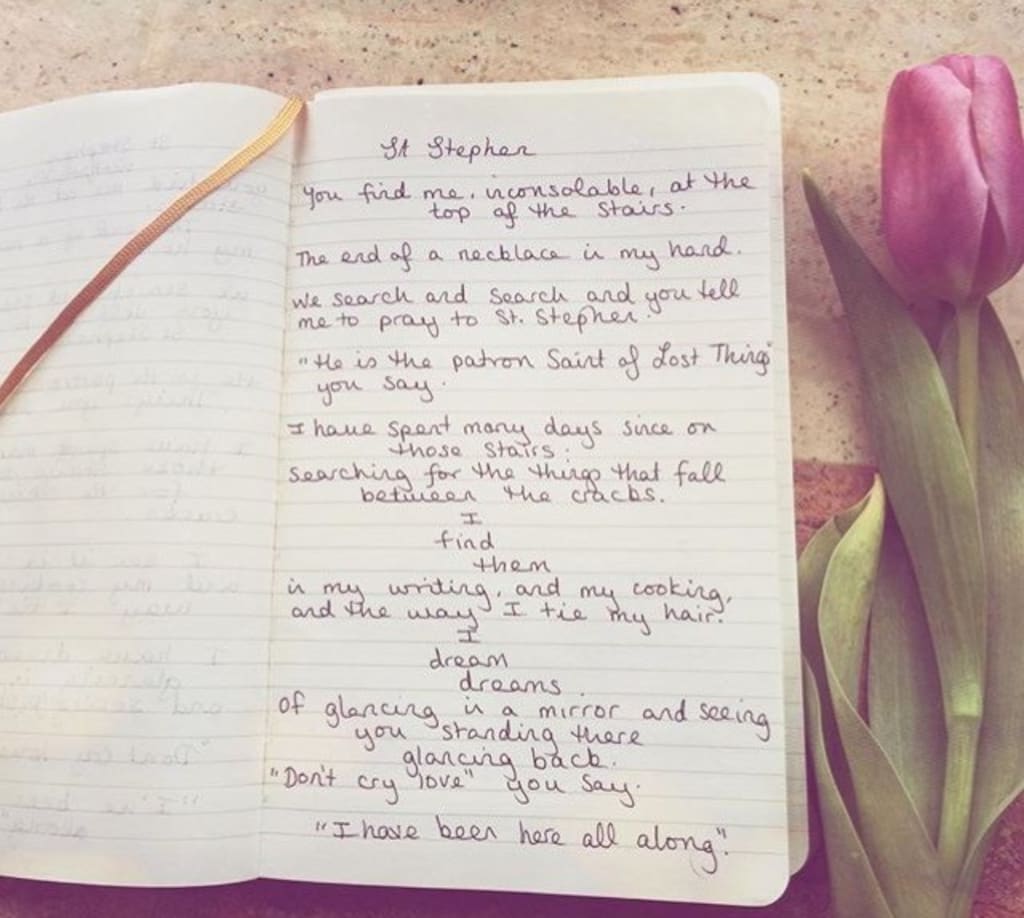 St Stephen
You find me, inconsolable, at the
top of the stairs.
The end of a necklace in my hand.
We search and search and you tell
me to pray to St. Stephen.
"He is the patron Saint of Lost Things"
you say.
I have spent many days since on
those stairs:
searching for the things that fall
between the cracks.
I
find
them
in my writing, and my cooking,
and the way I tie my hair.
I
dream
dreams.
Of glancing in a mirror and seeing
you standing there
glancing back.
"Don't cry love" you say.
"I have been here all along".